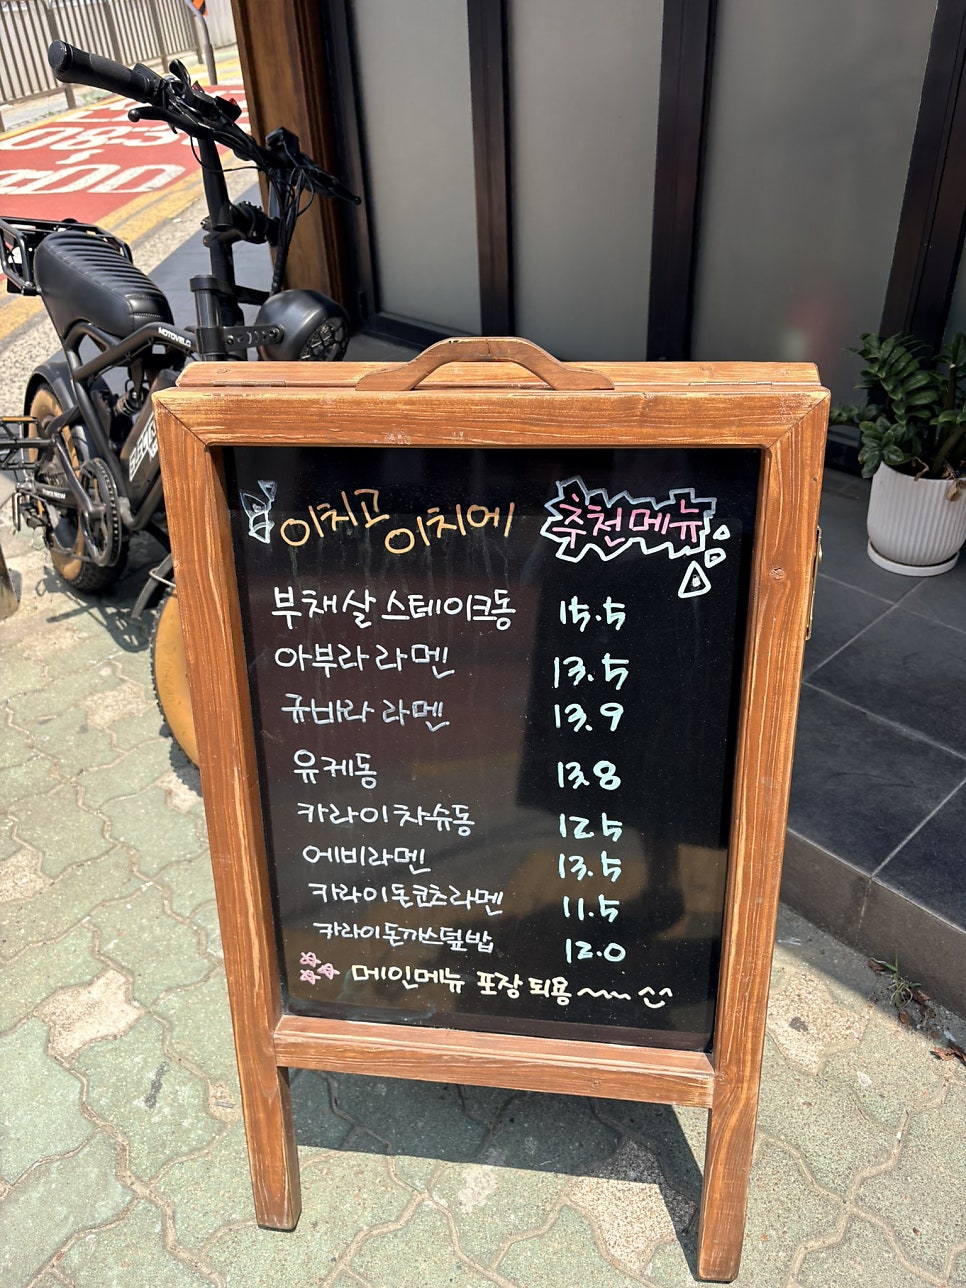 08:30
~
MOTOVELO
이치고 이치에 추천메뉴
부채살 스테이크동 15.5
아부라 라멘 13.5
규바라 라멘 13.9
유케동 13.8
카라이 차슈동 12.5
에비라멘 13.5
카라이돈코츠라멘 11.5
카라이돈까스덮밥 12.0
메인메뉴 포장 되용~~~ ^^